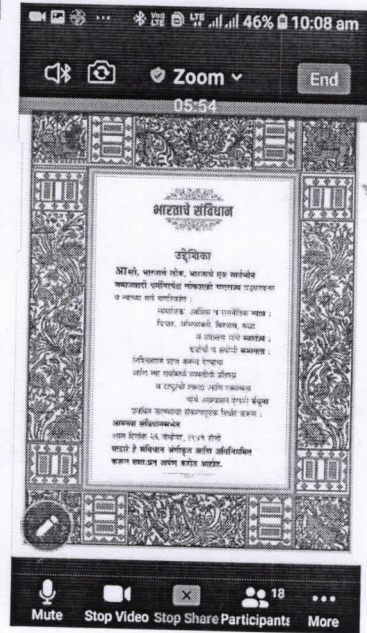 VoD LTE LTE 46% 10:08 am
Zoom End
05:54
भारताचे संविधान
उद्देशिका
आम्ही, भारताचे लोक, भारताचे एक सार्वभौम
समाजवादी धर्मनिरपेक्ष लोकशाही गणराज्य घडविण्याचा
व त्याच्या सर्व नागरिकांस :
सामाजिक, आर्थिक व राजनैतिक न्याय ;
विचार, अभिव्यक्ती, विश्वास, श्रद्धा
व उपासना यांचे स्वातंत्र्य ;
दर्जाची व संधीची समानता ;
निश्चितपणे प्राप्त करून देण्याचा
आणि त्या सर्वांमध्ये व्यक्तीची प्रतिष्ठा
व राष्ट्राची एकता आणि एकात्मता
यांचे आश्वासन देणारी बंधुता
प्रवर्धित करण्याचा संकल्पपूर्वक निर्धार करून ;
आमच्या संविधानसभेत
आज दिनांक २६ नोव्हेंबर, १९४९ रोजी
याद्वारे हे संविधान अंगीकृत आणि अधिनियमित
करून स्वतःप्रत अर्पण करीत आहोत.
18
Mute Stop Video Stop Share Participants More